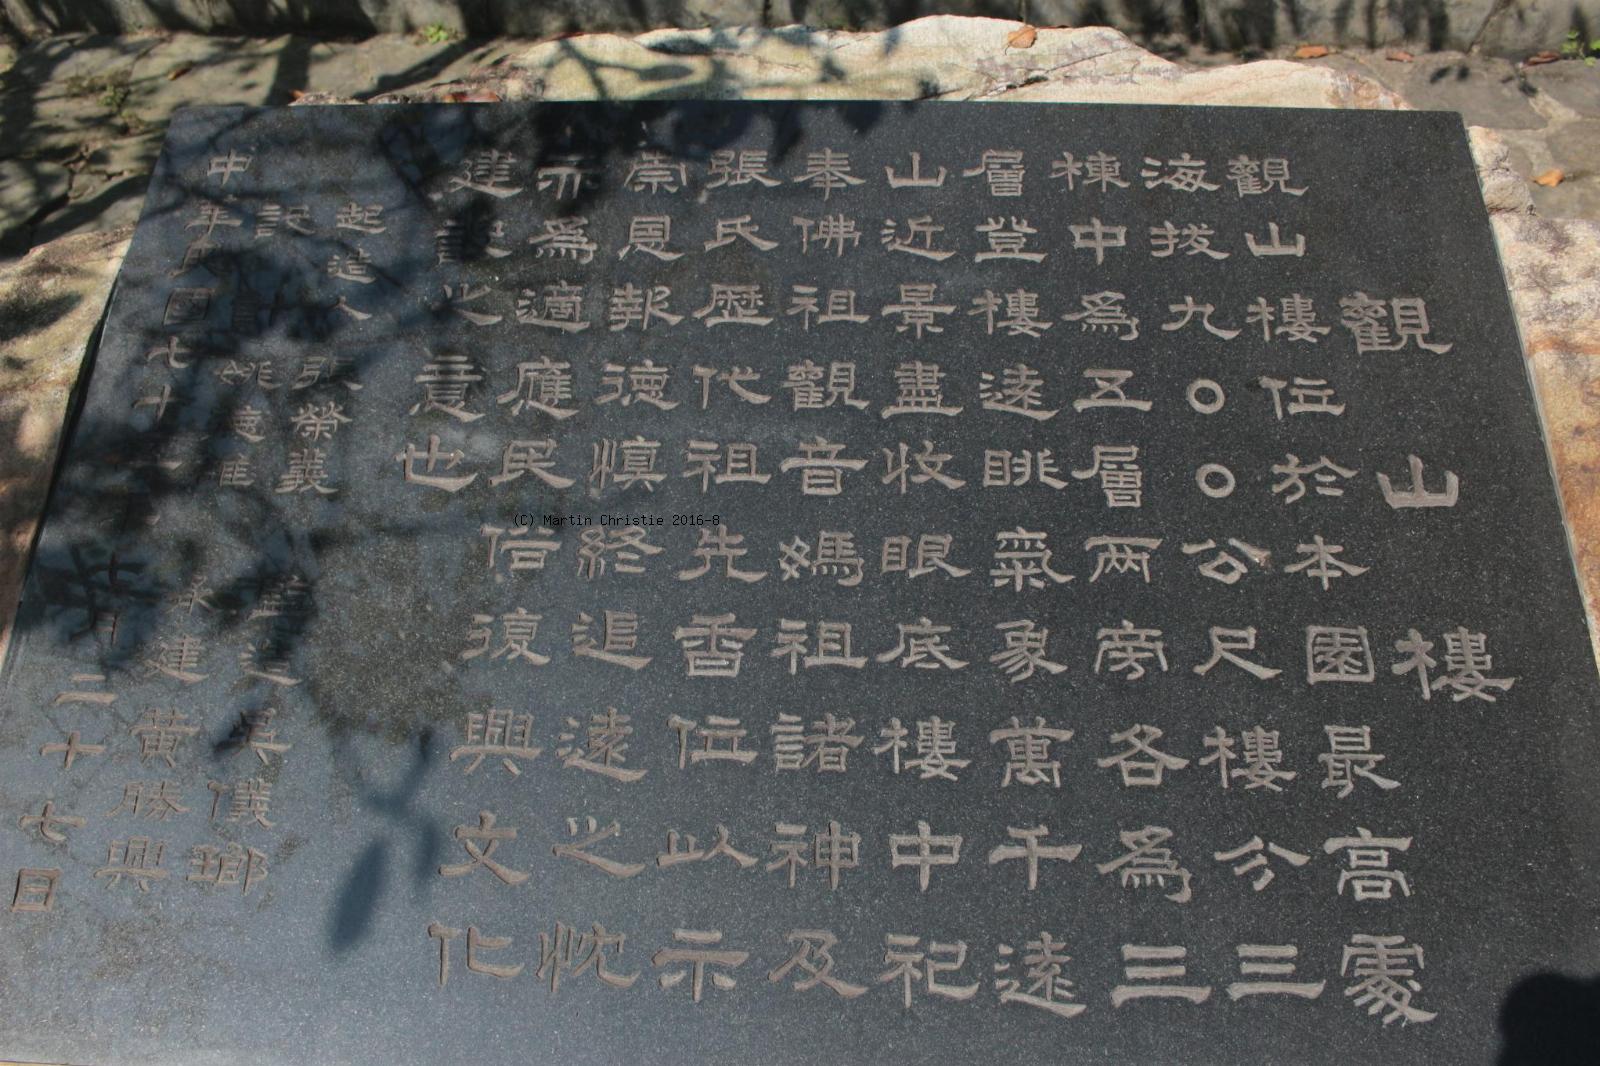 觀山樓
觀山樓位於本園最高處
海拔九〇〇公尺樓分三
棟中為五層兩旁各為三
層登樓遠眺氣象萬千遠
山近景盡收眼底樓中祀
奉佛祖觀音媽祖諸神及
張氏歷代祖先香位以示
崇恩報德慎終追遠之忱
亦為適應民俗復興文化
建設之意也
起造人 張榮義 監造 吳僕鄉
設計 姚 承建 黃勝興
中華民國七十一年十月二十七日
(C) Martin Christie 2016-8